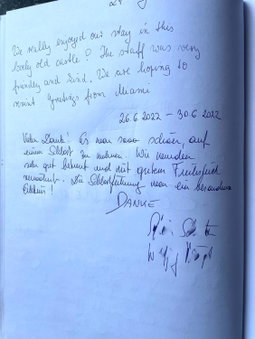 We really enjoyed our stay in this
lovely old castle! The staff was very
friendly and kind. We are hoping to
revisit Greetings from Miami
26.6.2022 - 30.6.2022
Vielen Dank! Es war sehr schön, auf
einem Schloss zu wohnen. Wir wurden
sehr gut betreut und mit gutem Frühstück
verwöhnt. Die Schlossführung war ein besonderes
Erlebnis!
DANKE